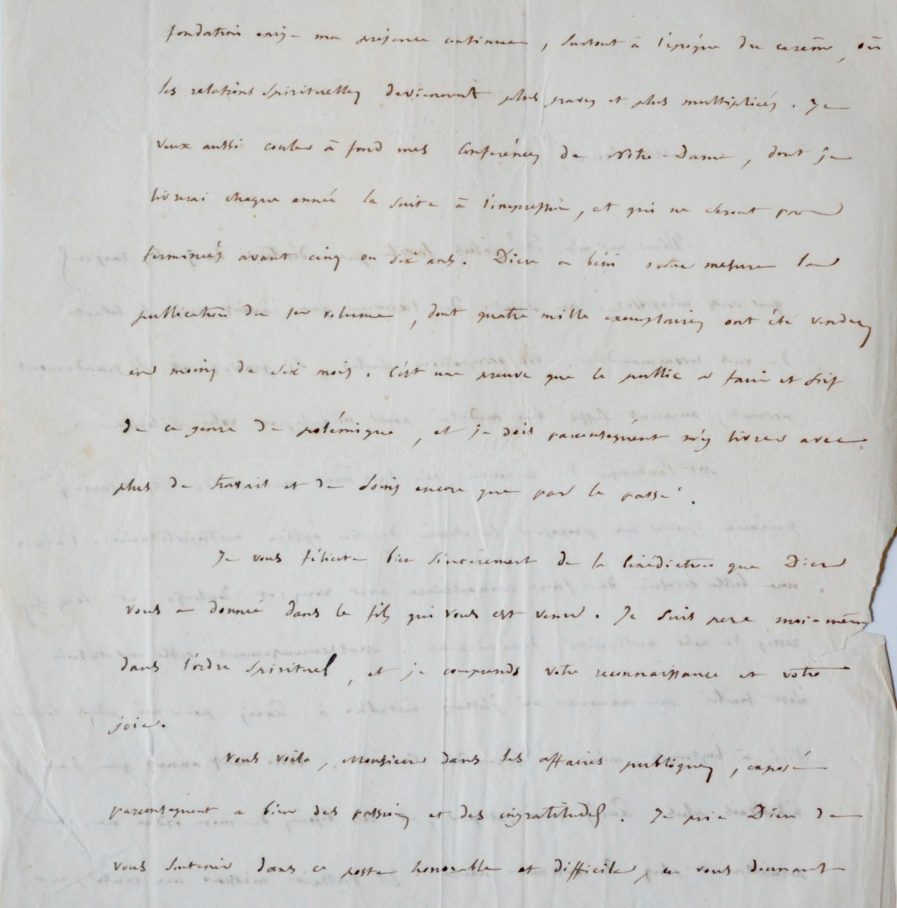 fondation exige ma présence continue, surtout à l'époque du carême, où
les relations spirituelles deviennent plus graves et plus multipliées. Je
veux aussi couler à fond mes Conférences de Notre-Dame, dont je
livrerai chaque année la suite à l'impression, et qui ne seront pas
terminées avant cinq ou six ans. Dieu a béni outre mesure la
publication du 1er volume, dont quatre mille exemplaires ont été vendus
en moins de six mois. C'est une preuve que le public a faim et soif
de ce genre de polémique, et je dois par conséquent m'y livrer avec
plus de travail et de soins encore que par le passé.
Je vous félicite bien sincèrement de la bénédiction que Dieu
vous a donnée dans le fils qui vous est venu. Je suis père moi-même
dans l'ordre spirituel, et je comprends votre reconnaissance et votre
joie.
Vous voilà, Monsieur dans les affaires publiques, exposé
par conséquent a bien des passions et des ingratitudes. Je prie Dieu de
vous soutenir dans ce poste honorable et difficile, en vous donnant